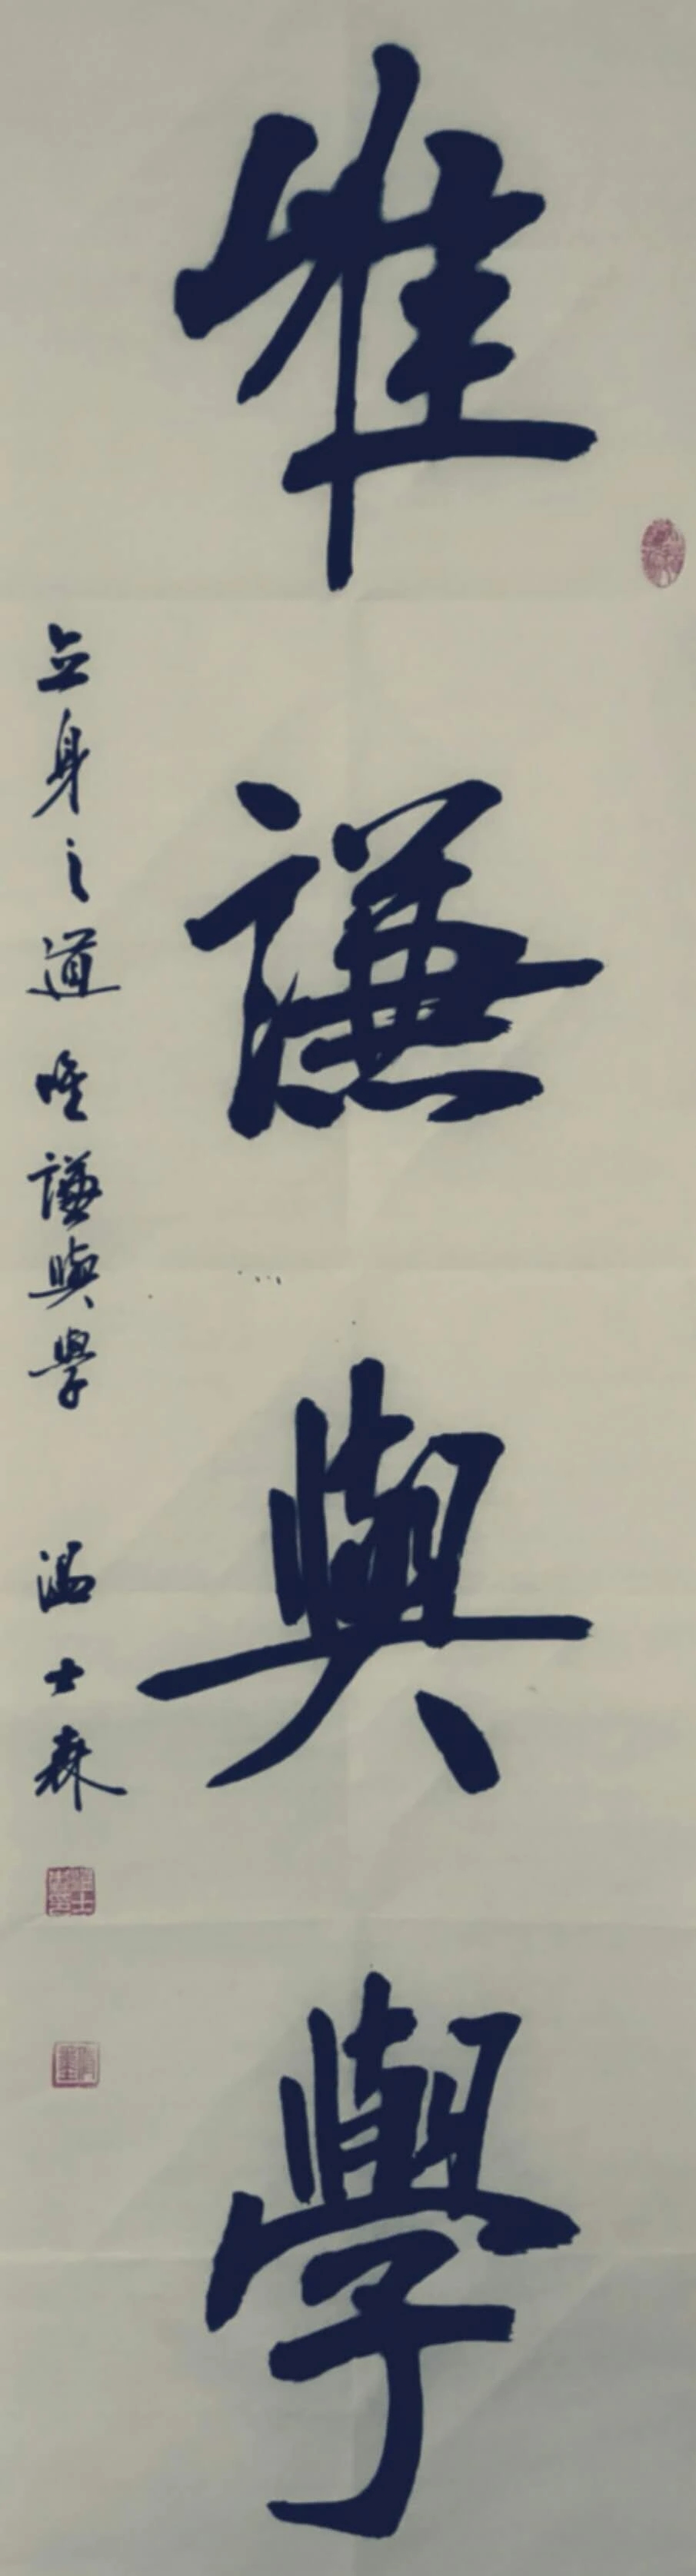 唯謙與學
立身之道 唯謙與學 温士森